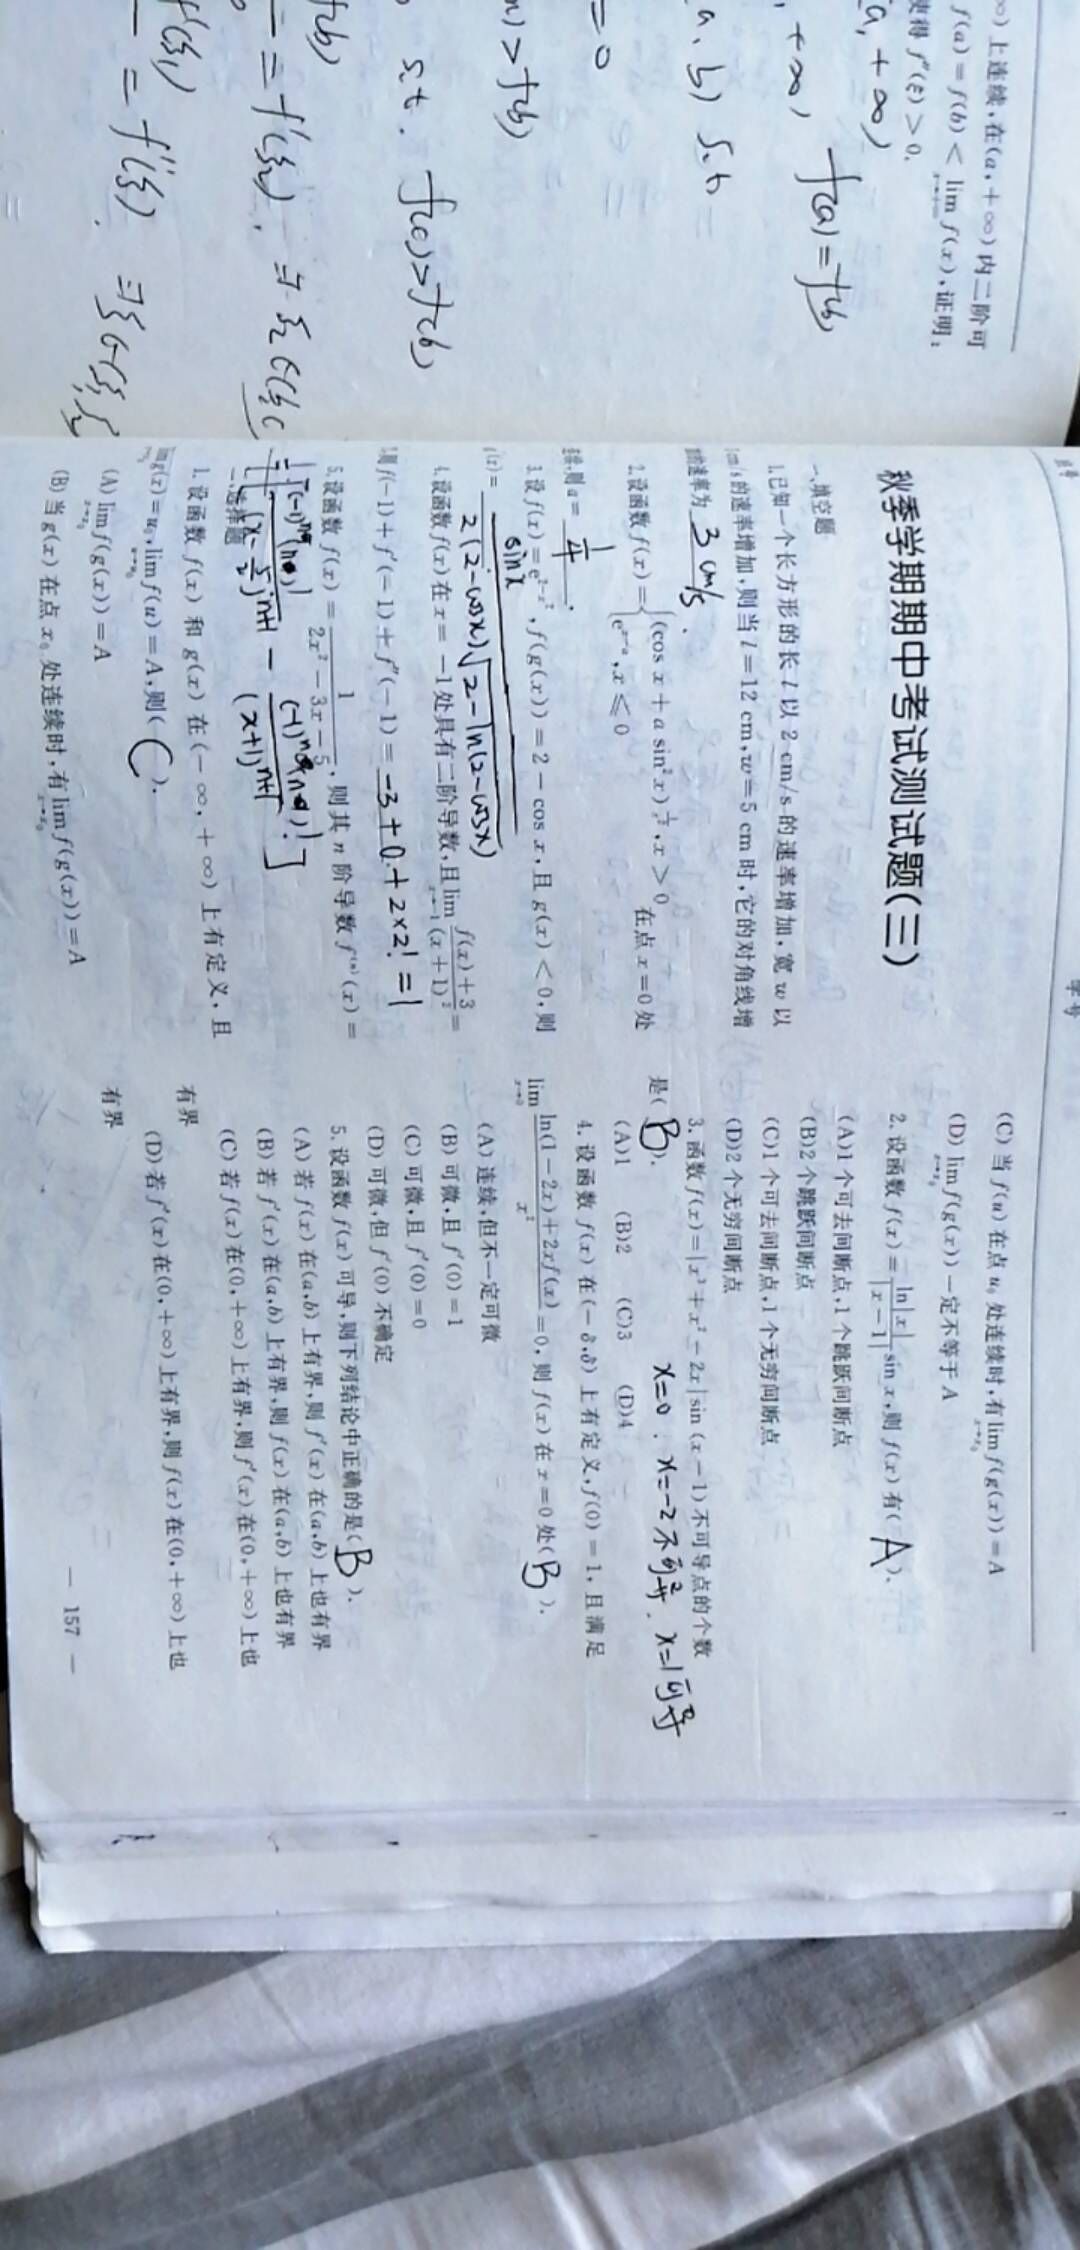 ∞)上连续,在(a,+∞)内二阶可
f(a)=f(b)<lim f(x),证明:
使得 f″(ξ)>0.
a,+∞)
,+∞, f(a)=f(b)
a,b) s.t
=0
>f(b)
s.t. f(c)>f(b)
f(b)
=f′(ξ₂), ∃ ξ₂∈(
f′(ξ₁)
=f″(ξ). ∃ξ∈(ξ₁,ξ₂
学号
秋季学期期中考试测试题(三)
一、填空题
1.已知一个长方形的长 l 以 2 cm/s 的速率增加,宽 w 以
cm/s 的速率增加,则当 l=12 cm,w=5 cm 时,它的对角线增
的速率为 3 cm/s.
2.设函数 f(x)={(cos x+a sin²x)^{1/x²},x>0
e^{x-a},x≤0 在点 x=0 处
连续,则 a=1/4.
3.设 f(x)=e^{2-x²},f(g(x))=2-cos x,且 g(x)<0,则
g′(x)=sinx/(2(2-cosx)√(2-ln(2-cosx)))
4.设函数 f(x)在 x=-1处具有二阶导数,且lim_{x→-1} (f(x)+3)/(x+1)²=
则 f(-1)+f′(-1)+f″(-1)=-3+0+2×2!=1
5.设函数 f(x)=1/(2x²-3x-5),则其 n 阶导数 f⁽ⁿ⁾(x)=
(-1)ⁿ(n)!/(x-5/2)ⁿ⁺¹ - (-1)ⁿ(n)!/(x+1)ⁿ⁺¹]
二、选择题
1.设函数 f(x) 和 g(x) 在(-∞,+∞)上有定义,且
lim g(x)=u₀,lim f(u)=A,则( C ).
(A) lim_{x→x₀} f(g(x))=A
(B) 当 g(x)在点 x₀ 处连续时,有lim_{x→x₀} f(g(x))=A
(C) 当 f(u)在点 u₀ 处连续时,有lim_{x→x₀} f(g(x))=A
(D) lim_{x→x₀} f(g(x)) 一定不等于 A
2.设函数 f(x)=ln|x|/|x-1| sin x,则 f(x)有( A ).
(A)1个可去间断点,1个跳跃间断点
(B)2个跳跃间断点
(C)1个可去间断点,1个无穷间断点
(D)2个无穷间断点
3.函数 f(x)=|x³+x²-2x|sin(x-1)不可导点的个数
是( B ). x=0. x=-2不可导. x=1可导
(A)1 (B)2 (C)3 (D)4
4.设函数 f(x)在(-δ,δ)上有定义,f(0)=1,且满足
lim_{x→0} (ln(1-2x)+2xf(x))/x²=0,则 f(x)在 x=0处( B ).
(A)连续,但不一定可微
(B)可微,且 f′(0)=1
(C)可微,且 f′(0)=0
(D)可微,但 f′(0)不确定
5.设函数 f(x)可导,则下列结论中正确的是( B ).
(A)若 f(x)在(a,b)上有界,则 f′(x)在(a,b)上也有界
(B)若 f′(x)在(a,b)上有界,则 f(x)在(a,b)上也有界
(C)若 f(x)在(0,+∞)上有界,则 f′(x)在(0,+∞)上也
有界
(D)若 f′(x)在(0,+∞)上有界,则 f(x)在(0,+∞)上也
有界
— 157 —